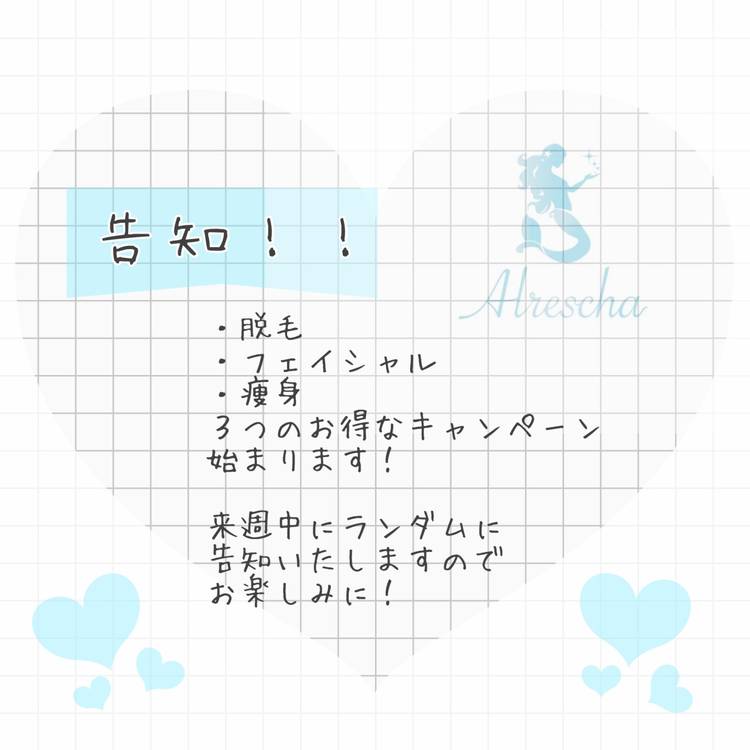 告知！！
Alrescha
・脱毛
・フェイシャル
・痩身
３つのお得なキャンペーン
始まります！
来週中にランダムに
告知いたしますので
お楽しみに！